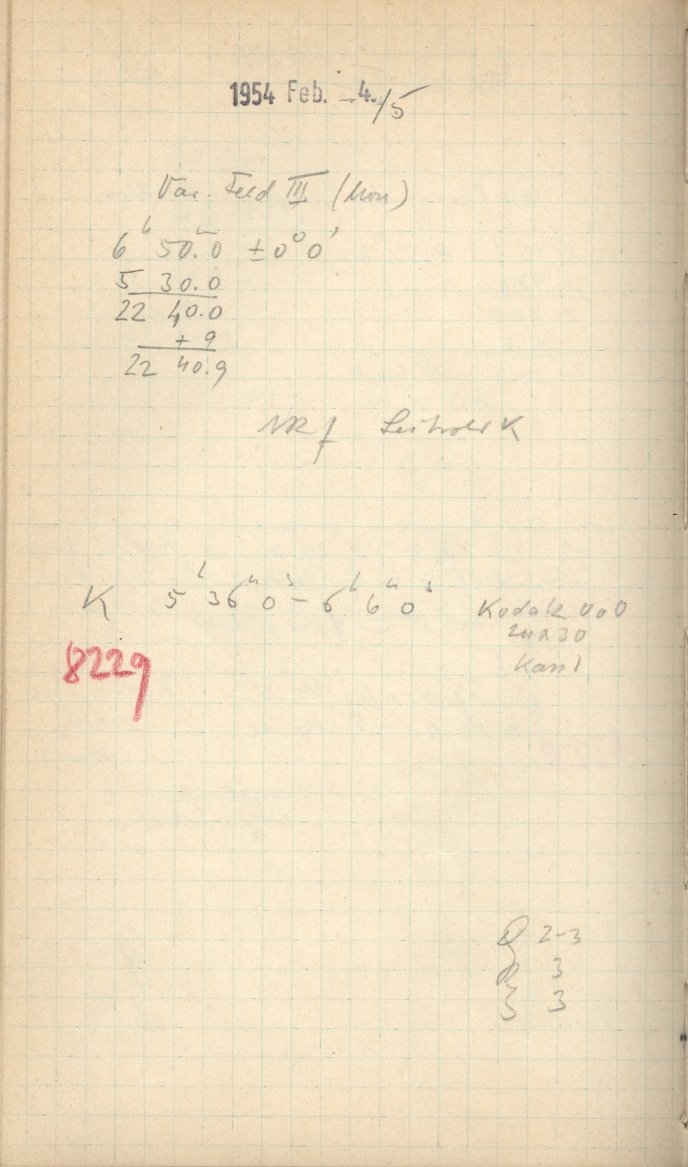 1954 Feb. – 4./5
Var. Feld III (Mon)
6ʰ 50.ᵐ0 ±0° 0'
5 30.0
22 40.0
+ 9
22 40.9
K
K 5ʰ 36ᵐ 0ˢ – 6ʰ 6ᵐ 0ˢ Kodak 0a0
24x30
Kass I
8229
2-3
3
3